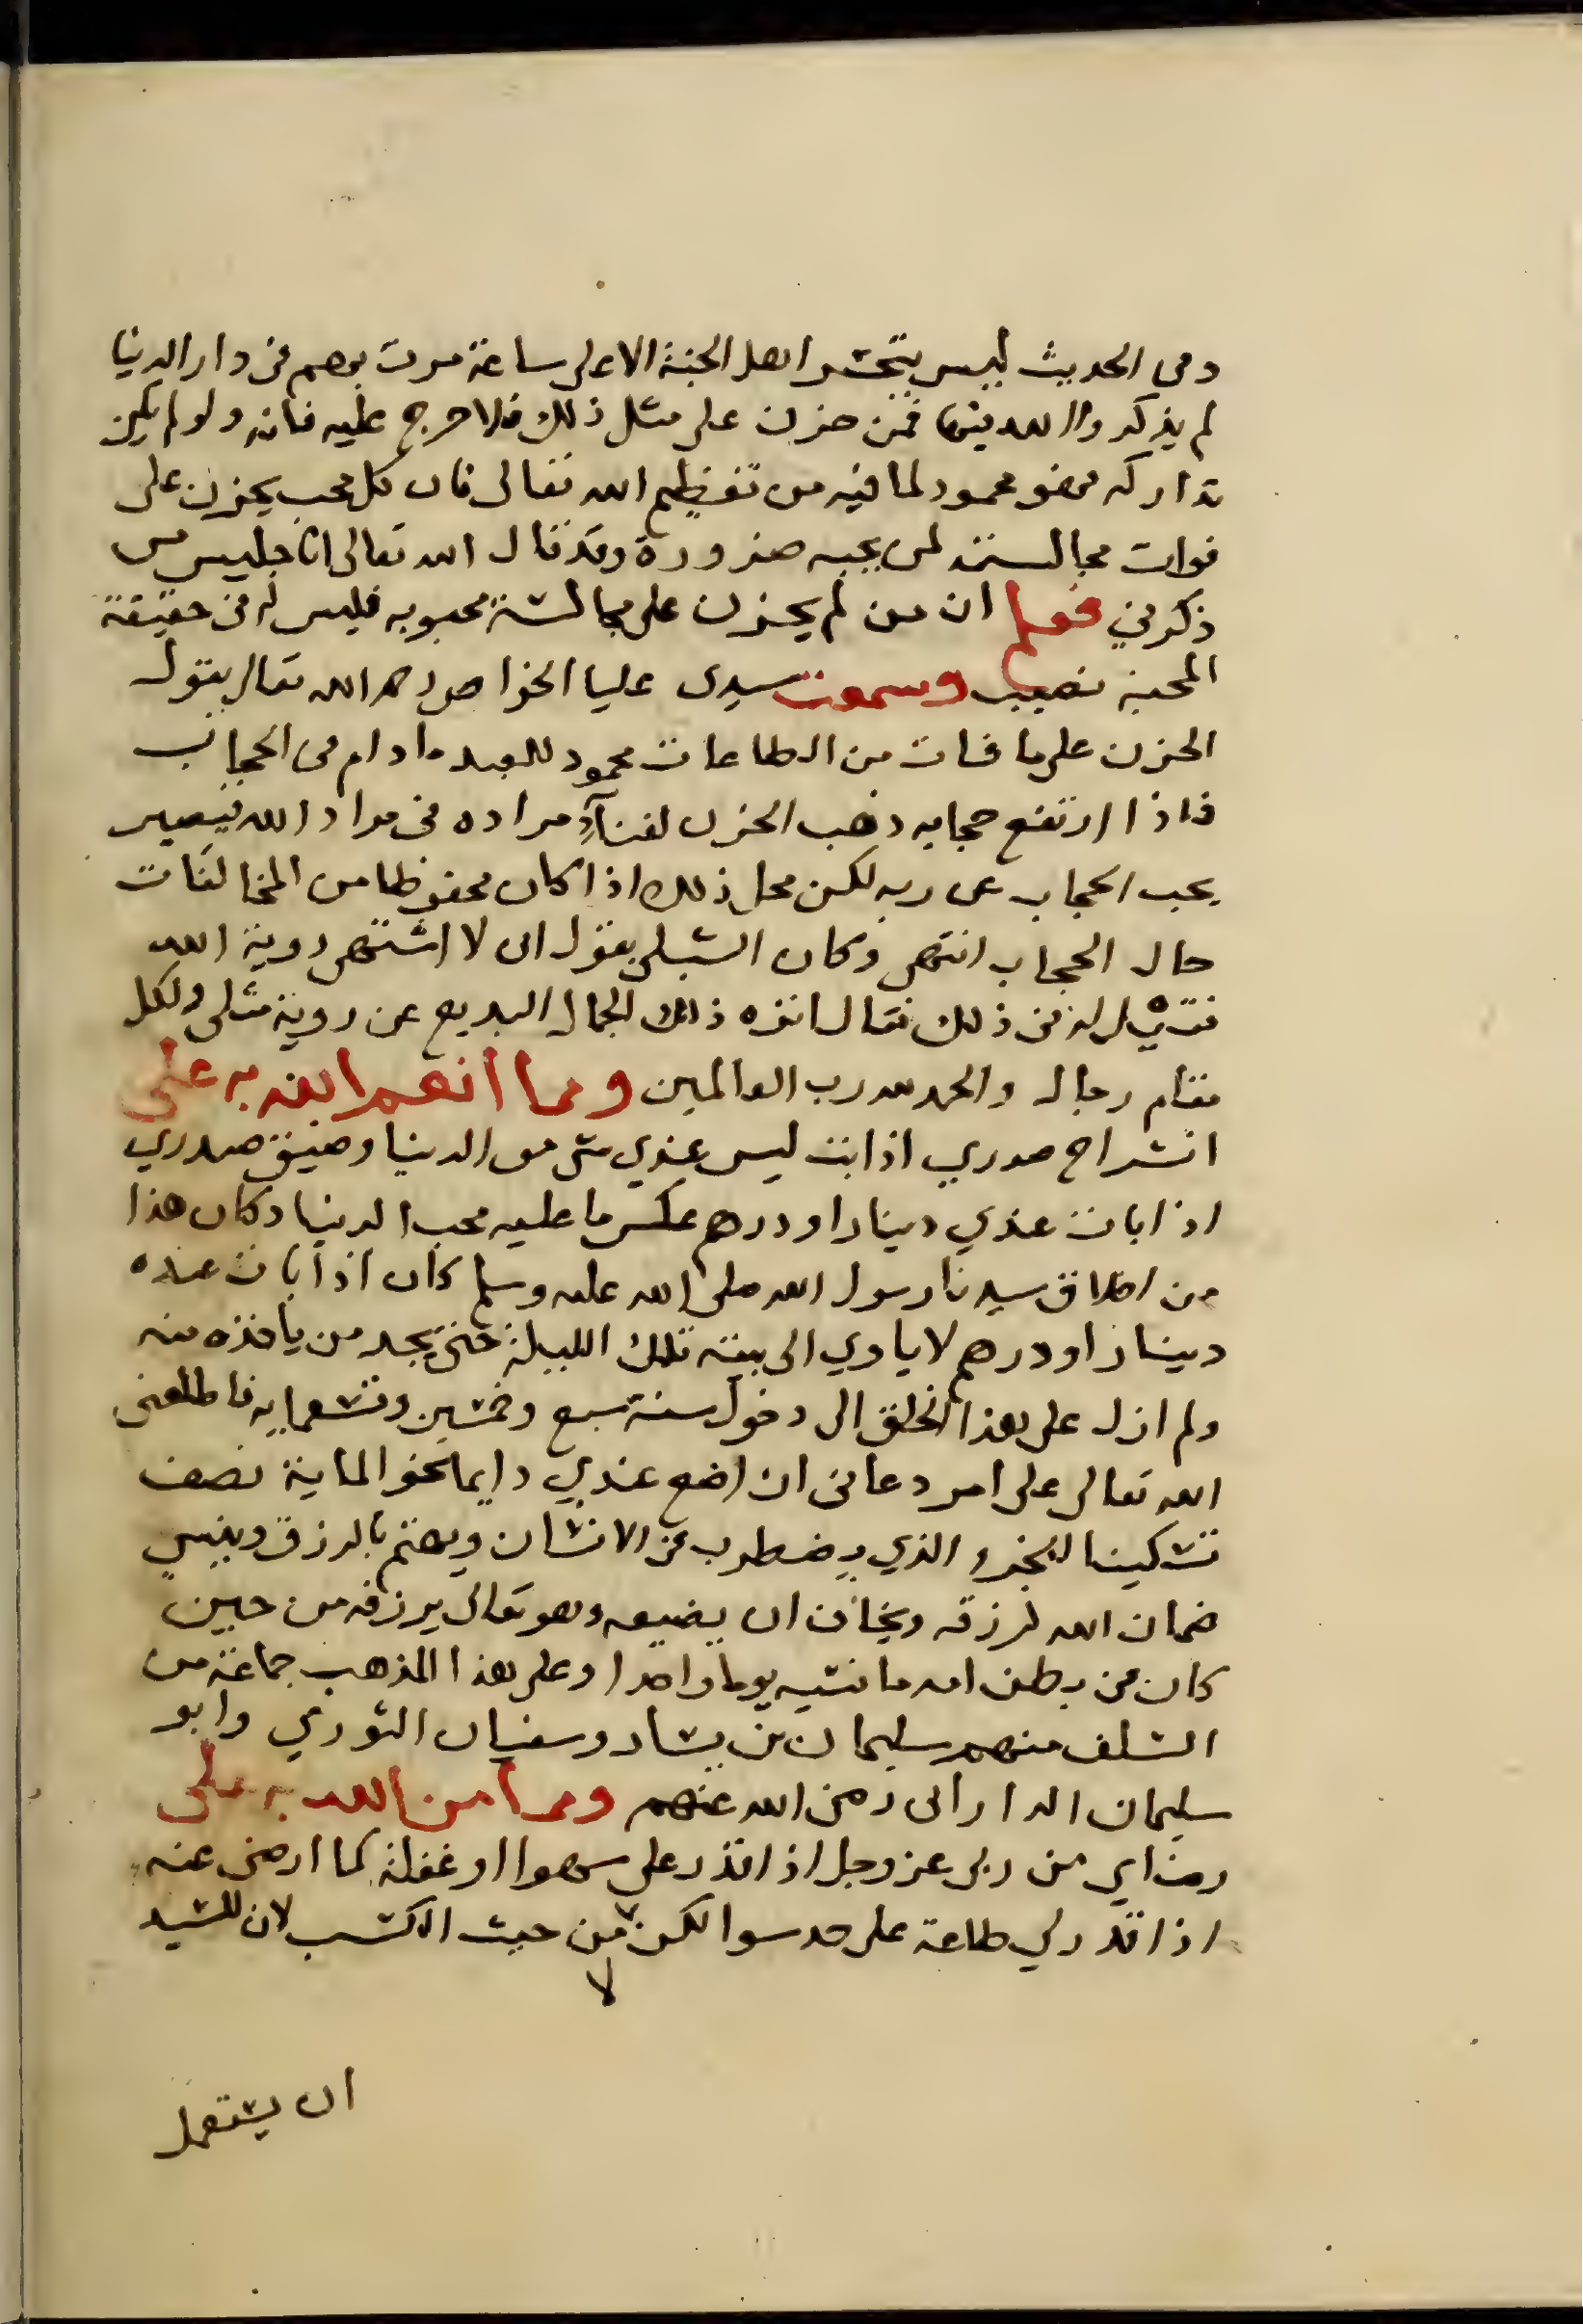 وفى الحديث ليس يتحسر اهل الجنة الا على ساعة مرت بهم فى دار الدنيا
لم يذكروا الله فيها فمن حزن على مثل ذلك فلا حرج عليه فانه ولو لم يكن
تداركه فهو محمود لما فيه من تعظيم الله تعالى فان كل محب يحزن على
فوات مجالسته لمن يحبه ضرورة وقد قال الله تعالى انا جليس من
ذكرني فعلم ان من لم يحزن على مجالسة محبوبه فليس له فى حقيقة
المحبة نصيب وسمعت سيدى عليا الخواص رحمه الله تعالى يقول
الحزن على ما فات من الطاعات محمود للعبد ما دام فى الحجاب
فاذا ارتفع حجابه ذهب الحزن لفنآءِ مراده فى مراد الله فيصير
يحب الحجاب عن ربه لكن محل ذلك اذا كان محفوظا من المخالفات
حال الحجاب انتهى وكان الشبلى يقول انى لا اشتهى روية الله
فقيل له فى ذلك فقال انزه ذلك الجمال البديع عن روية مثلى ولكل
مقام رجال والحمد لله رب العالمين ومما انعم الله به على
انشراح صدري اذا بت ليس عندي شى من الدنيا وضيق صدري
اذا بات عندي دينارا او درهم عكس ما عليه محب الدنيا وكان هذا
من اخلاق سيدنا رسول الله صلى الله عليه وسلم كان اذا بات عنده
دينارا او درهم لا ياوي الى بيته تلك الليلة حتى يجد من ياخذه منه
ولم ازل على هذا الخلق الى دخول سنة سبع وخمسين وتسعمايه فاطلعنى
الله تعالى على امر دعانى ان اضع عندي دايما نحو الماية نصف
تسكينا للجزء الذي يضطرب من الانسان ويهتم بالرزق وينسي
ضمان الله لرزقه ويخاف ان يضيعه وهو تعالى يرزقه من حين
كان فى بطن امه ما نسيه يوما واحدا وعلى هذا المذهب جماعة من
السلف منهم سليمان بن يسار وسفيان الثوري وابو
سليمان الدارانى رضى الله عنهم ومما من الله به على
رضاي عن ربى عز وجل اذا قدر على سهوا او غفلة كما ارضى عنه
اذا قدر لي طاعة على حد سوا لكن من حيث الكسب لان للسيد
لا
ان يستعمل